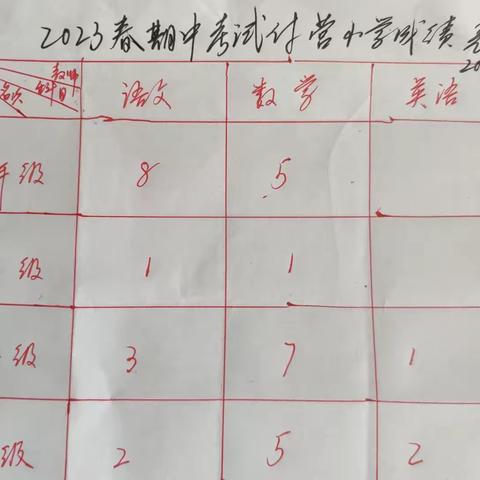 2023春期中考试付营小学成绩
20
教师
科目
名次
语文 数学 英语
年级 8 5
级 1 1
级 3 7 1
级 2 5 2